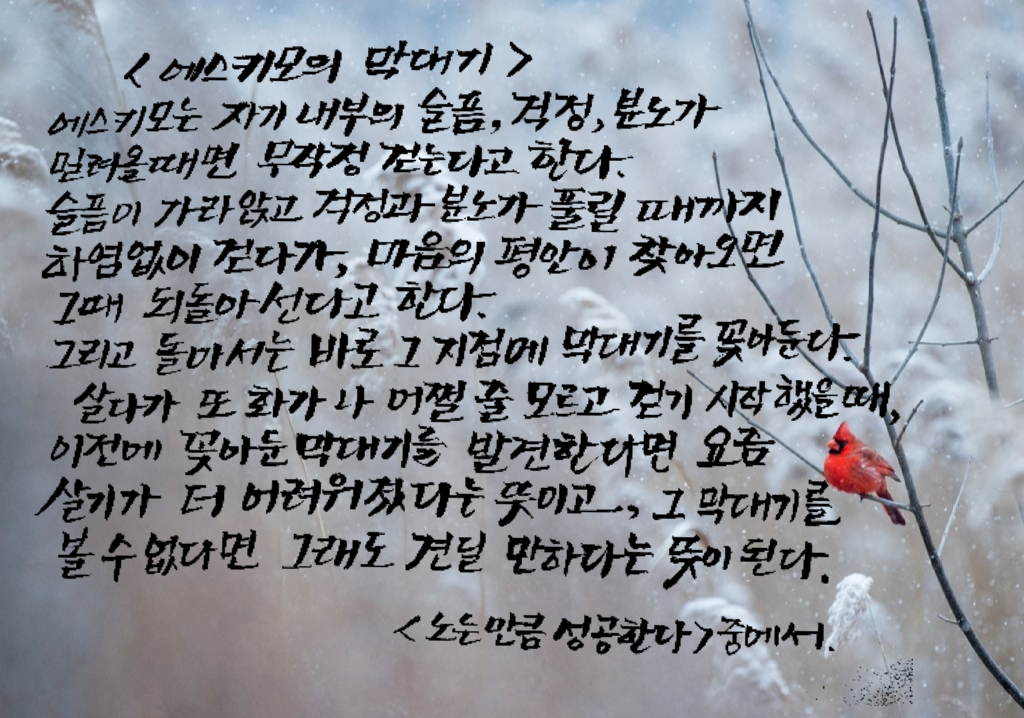 <에스키모의 막대기>
에스키모는 자기 내부의 슬픔, 걱정, 분노가
밀려올때면 무작정 걷는다고 한다.
슬픔이 가라앉고 걱정과 분노가 풀릴 때까지
하염없이 걷다가, 마음의 평안이 찾아오면
그때 되돌아 선다고 한다.
그리고 돌아서는 바로 그 지점에 막대기를 꽂아둔다.
살다가 또 화가 나 어쩔 줄 모르고 걷기 시작했을때,
이전에 꽂아둔 막대기를 발견한다면 요즘
살기가 더 어려워졌다는 뜻이고., 그 막대기를
볼 수 없다면 그래도 견딜 만하다는 뜻이 된다.
<노는만큼 성공한다> 중에서.